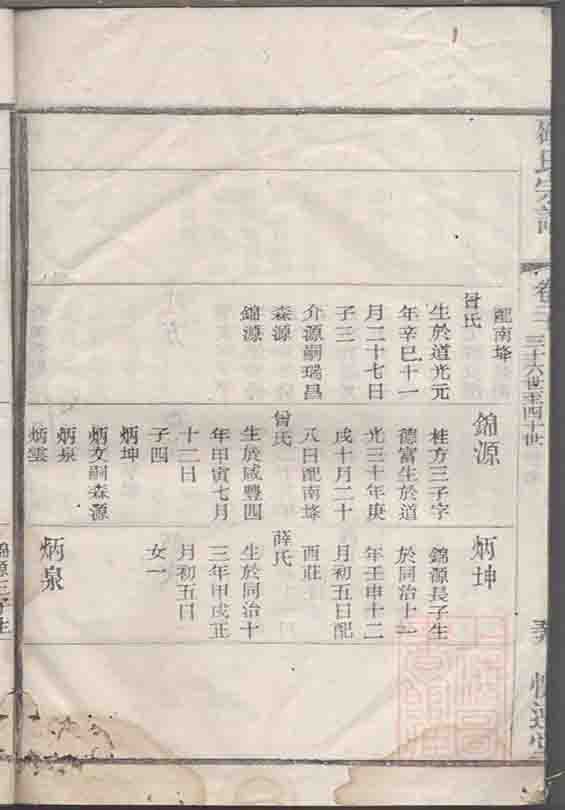 氏宗譜
卷三
三十六世至四十世
配南埄
曾氏
生於道光元
年辛巳十一
月二十七日
子三
介源嗣瑞昌
森源
錦源
錦源
桂方三子字
德富生於道
光三十年庚
戌十月二十
八日配南埄
曾氏
生於咸豐四
年甲寅七月
十二日
子四
炳坤
炳文嗣森源
炳泉
炳雲
炳坤
錦源長子生
於同治十一
年壬申十二
月初五日配
西莊
薛氏
生於同治十
三年甲戌正
月初五日
女一
炳泉
錦源三子生